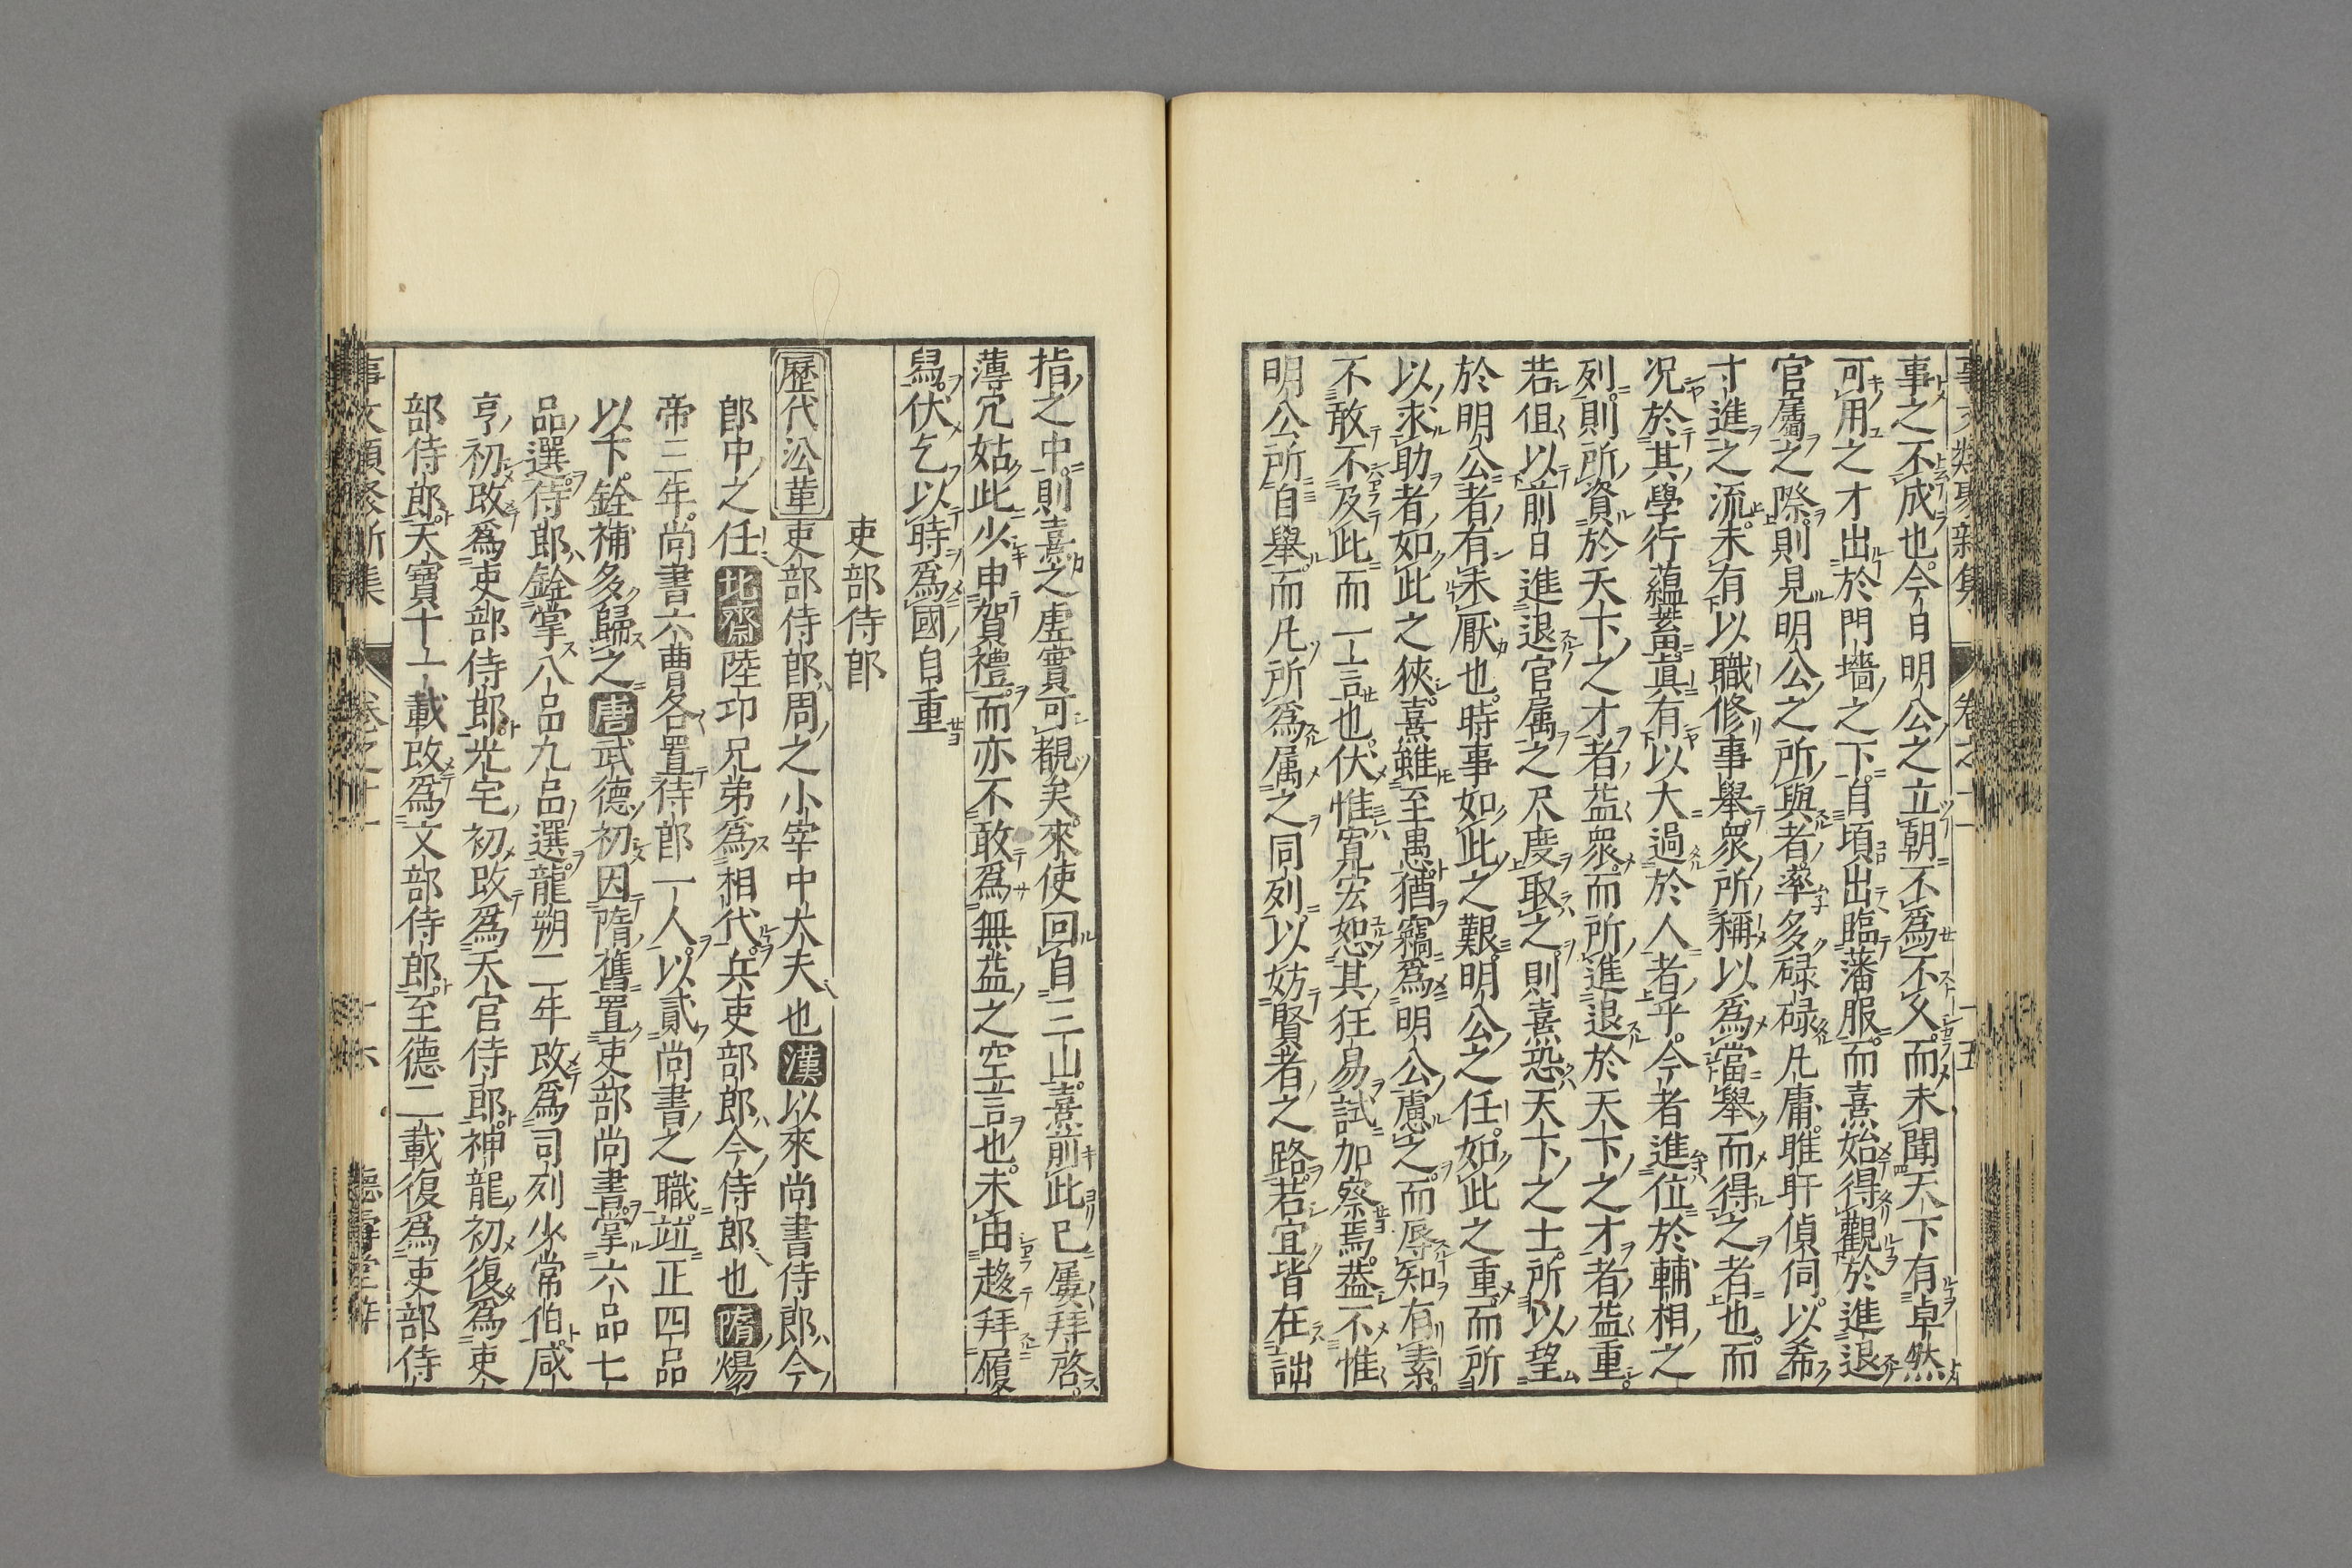 事文類聚新集 卷之十一 十五
事之不成也今日明公之立朝不爲不久而未聞天下有卓然
可用之才出於門墻之下自頃出臨藩服而熹始得觀於進退
官屬之際則見明公之所與者率多碌碌凡庸睢盱偵伺以希
寸進之流未有以職修事舉衆所稱以爲當舉而得之者也而
况於其學行蘊蓄真有以大過於人者乎今者進位於輔相之
列則所資於天下之才者益衆而所進退於天下之才者益重
若但以前日進退官属之尺度取之則熹恐天下之士所以望
於明公者有未厭也時事如此之艱明公之任如此之重而所
以求助者如此之狹熹雖至愚猶竊爲明公慮之而辱知有素
不敢不及此而一言也伏惟寛宏恕其狂易試加察焉葢不惟
明公所自舉而凡所爲属之同列以妨賢者之路若宜皆在詘
指之中則熹之虚實可覩矣來使回自三山熹前此已屢拜啓
薄冗姑此少申賀禮而亦不敢爲無益之空言也未由趍拜履
舃伏乞以時爲國自重
吏部侍郎
歷代沿革 吏部侍郎周之小宰中大夫也漢以來尚書侍郎今
郎中之任北齋陸卭兄弟爲相代兵吏部郎今侍郎也隋煬
帝三年尚書六曹各置侍郎一人以貳尚書之職竝正四品
以下銓補多歸之唐武德初因隋舊置吏部尚書掌六品七
品選侍郎銓掌八品九品選龍朔二年改爲司列少常伯咸
亨初改爲吏部侍郎光宅初改爲天官侍郎神龍初復爲吏
部侍郎天寶十一載改爲文部侍郎至德二載復爲吏部侍